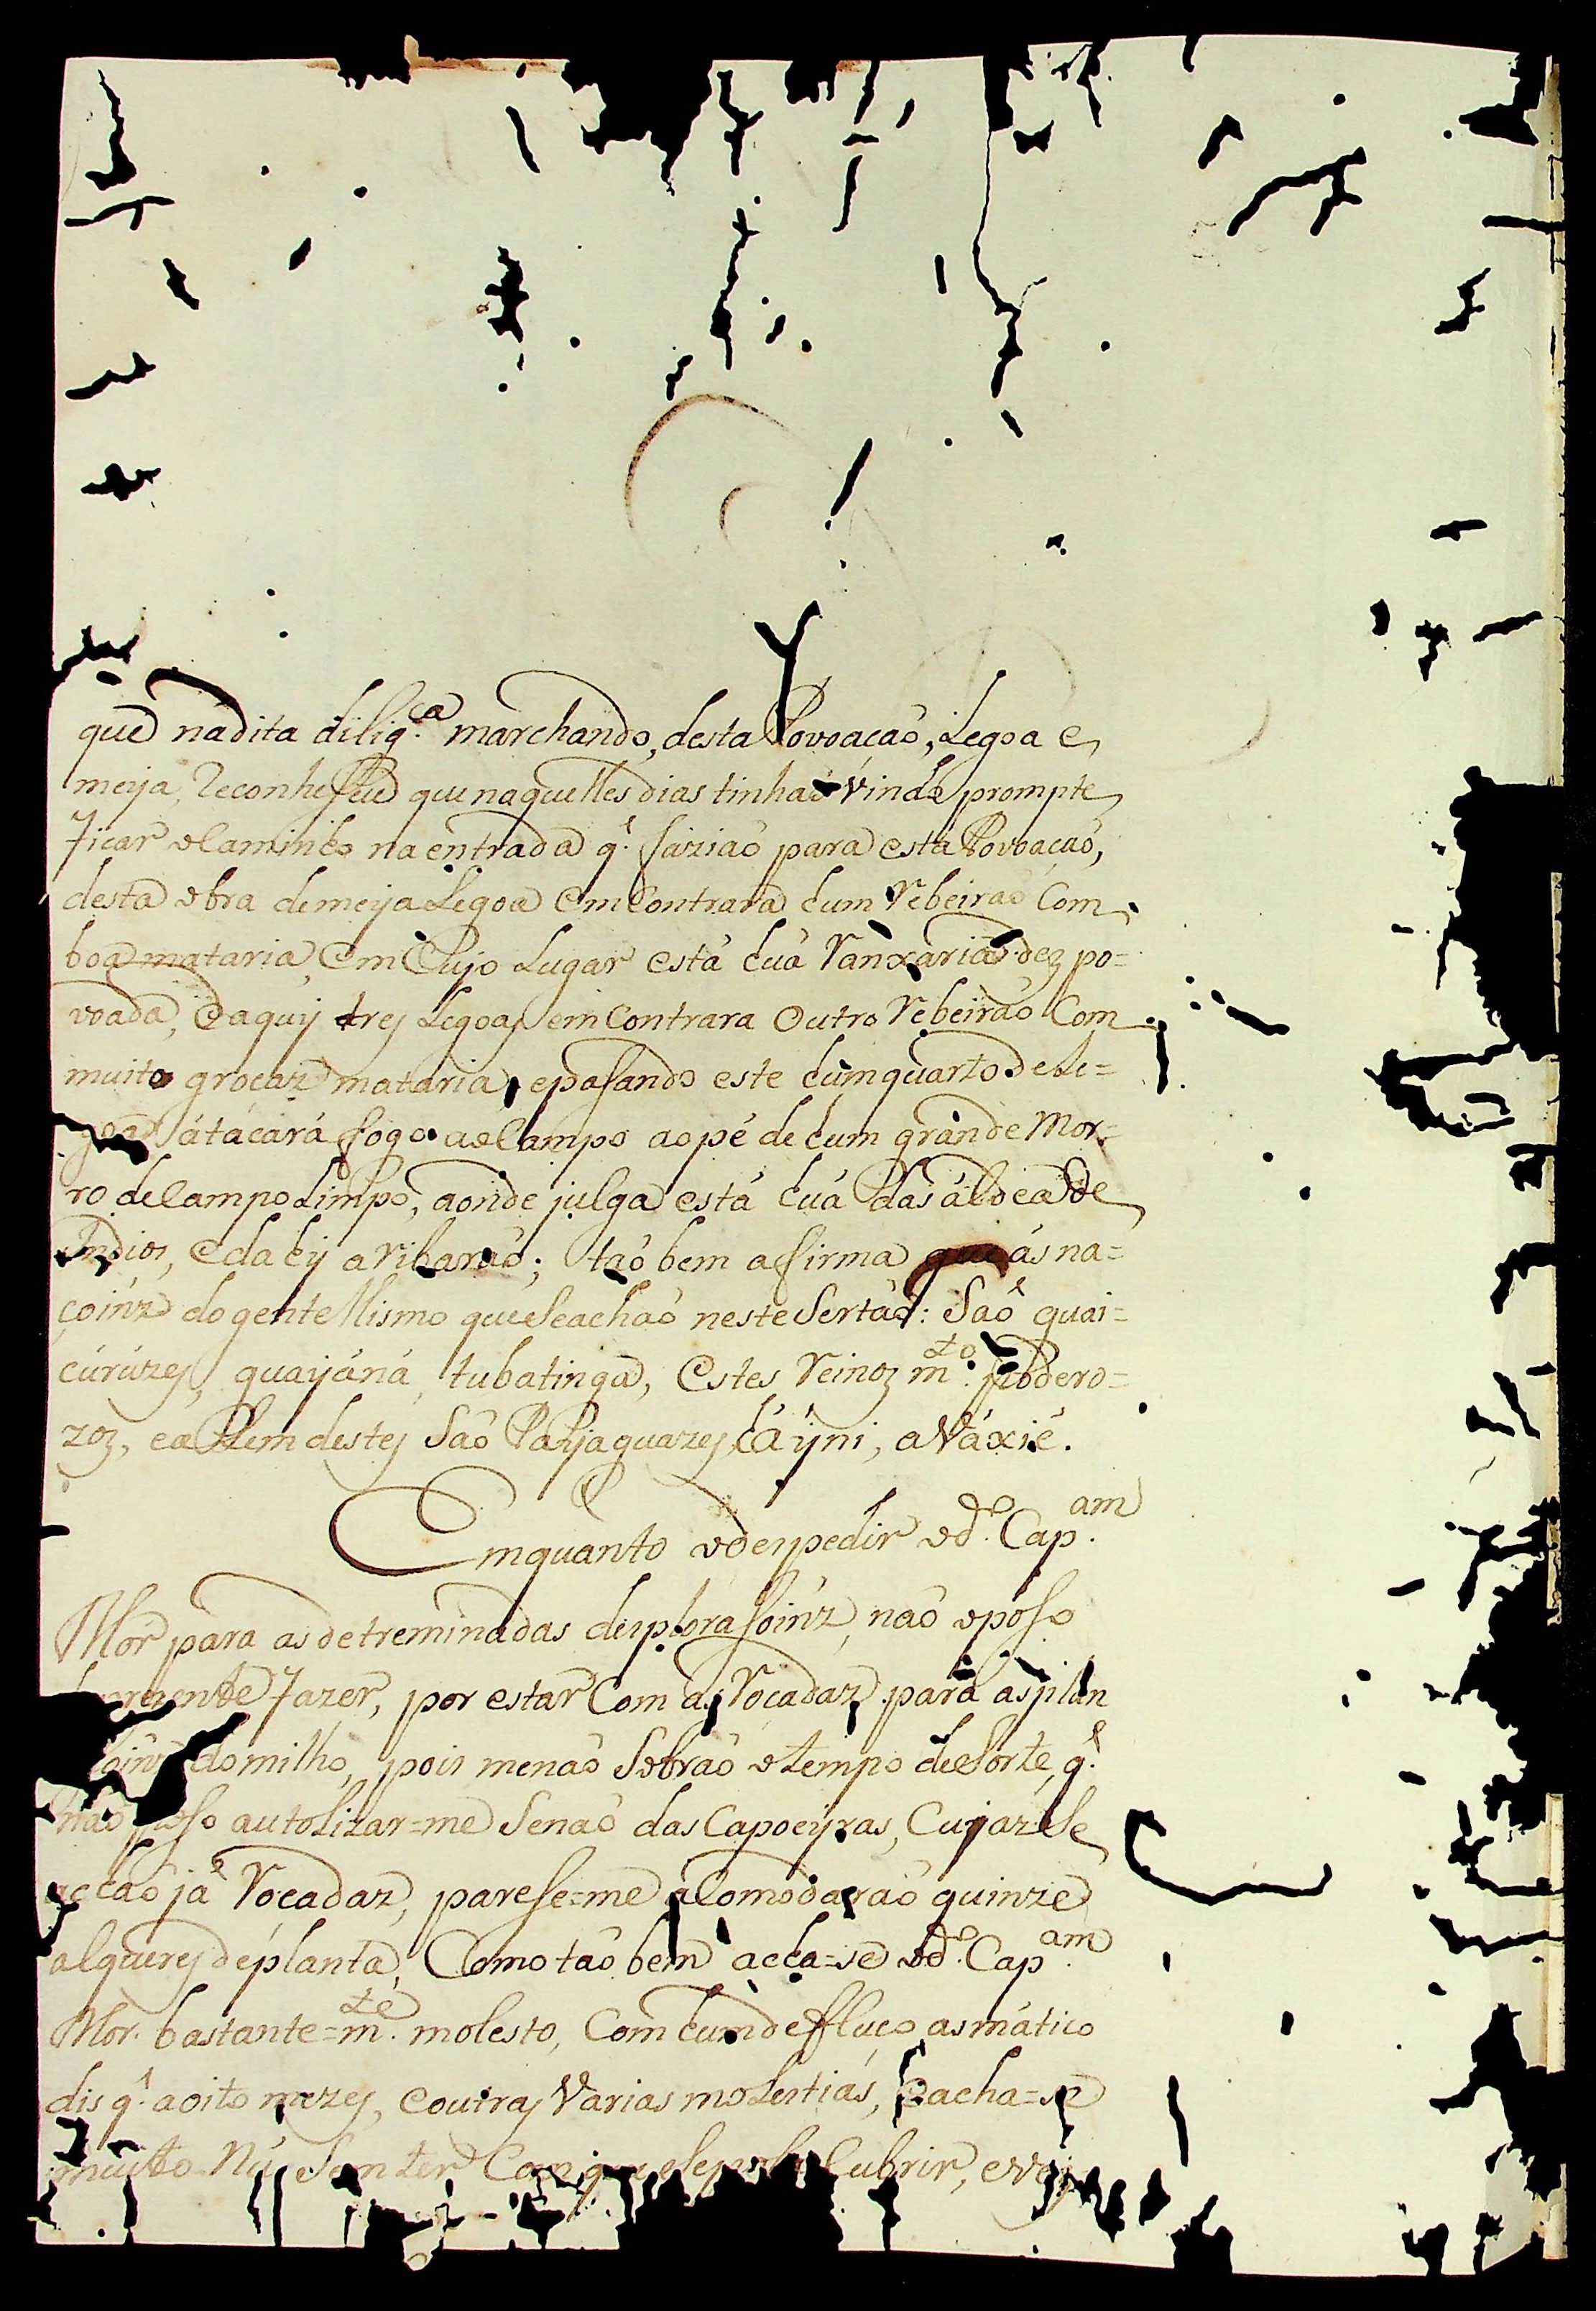 que nadita dilig.ca marchando, desta Povoação, Legoa e
meija, Reconheseu que naquelles dias tinhaó vindo prompte
ficar o Caminho na entrada q.' fazião para esta Povoação,
desta obra de meija Legoa Em Contrará hum Rebeirão Com
boa mataria, Em Cujo Lugar está huá Ranxaria dez po=
voada, e daquij trez Legoas em Contrara Outro Rebeirão Com
muito groçaz mataria, epasando este hum quarto de Le=
goa átácará fogo ao Campo ao pé de hum grande Mor=
ro de Campo Limpo, aonde julga está huá das áldea de
Indios, e da hij a Ribarão; tão bem afirma que ás na=
çoinz do gentellismo que Se achaõ neste Sertão: São guai=
cúrúzes, guayáná, tubatinga, Estes Reinoz m.to poddero=
zoz, ea Llem destes São Payaguazes, Cáyni, aVáxié.
Emquanto o despedir o d.o Cap.am
Mor para as detreminadas desplorasoinz, não o poso
prezente fazer, por estar Com as Roçadaz para as plan
soinz do milho, pois me não Sobrão o tempo de Sorte, q.'
não poso autolizar=me Senão das Capoeyras, Cujaz Se
acção já Roçadaz, parese=me aComodarão quinze
alqueres de planta, Como tão bem acha=se o d.o Cap.am
Mor. bastante=m.te molesto, Com hum defluço asmático
dis q.' a oito mezes, e outras Varias molestiás, E acha=se
muito Nú Sem ter Com que Se posa Cubrir,